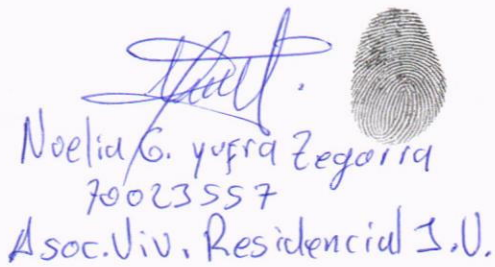 Noelia G. yufra Zegarra
70023557
Asoc. Viv. Residencial J.V.